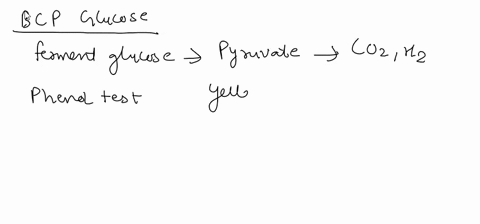 BCP Glucose
ferment glucose → Pyruvate → CO2, H2
Phenol test yell